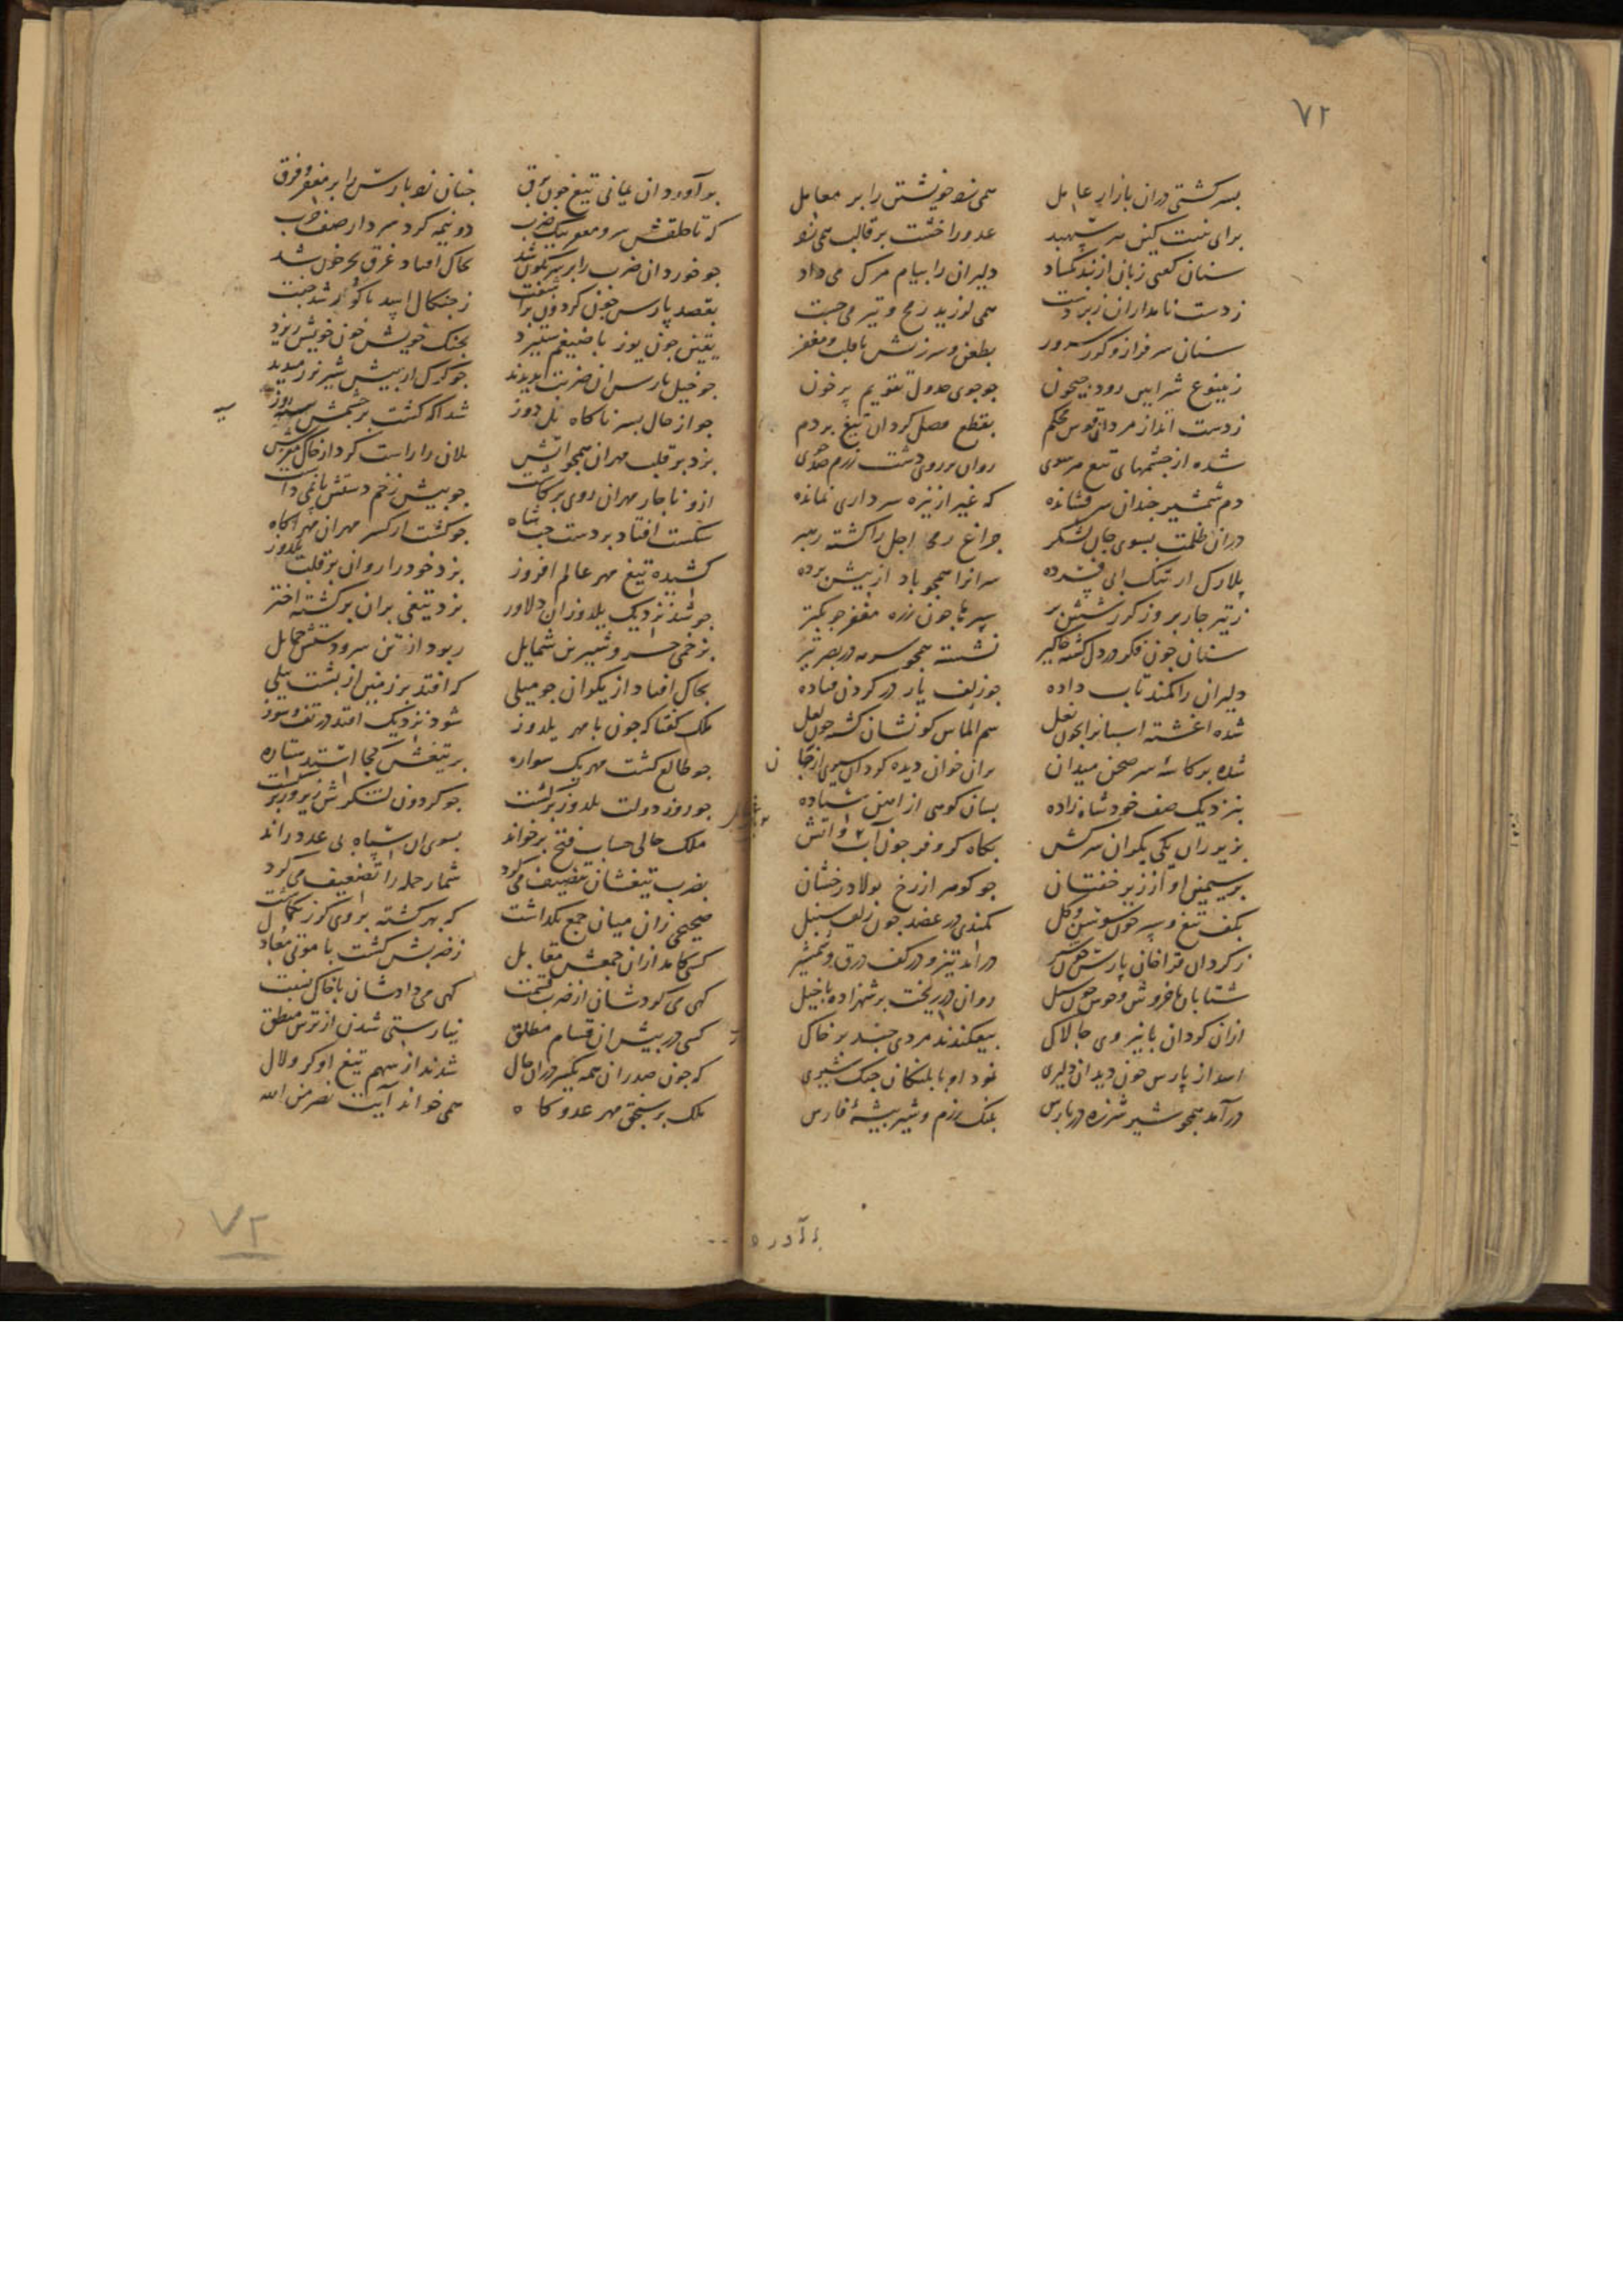 ۷۲
بسر کشتی دران بازار عامل همی زد خویشتن را بر معامل
برای نیت کین سر سپهبد عدو را خشت بر قالب همی زد
سنان کفتی زبان از بند بکشاد دلیران را پیام مرک می داد
ز دست نامداران زبردست همی لرزید رمح و تیر می جست
سنان سرفراز و کرز سرور بطعن و سرزنش با قلب و مغفر
ز ینبوع شرایین رود جیحون چو جوی جدول تقویم پر خون
ز دست انداز مردان قوس محکم بقطع مفصل کردان تیغ بر دم
شده از چشمهای تیغ هر سوی روان بر روی دشت رزم جوی
دم شمشیر چندان سر فشانده که غیر از نیزه سرداری نمانده
دران ظلمت بسوی جان لشکر چراغ رمح اجل را کشته رهبر
پلارک از تنک ابی فشرده سرانرا همچو باد از پیش برده
ز تیر چار پر وز کرز شش پر سپرها چون زره مغفر چو
سنان چون فکر در دل کشته جاکیر نشسته همچو سرمه در بصر تیر
دلیران را کمند تاب داده چو زلف یار در کردن فتاده
شده اغشته اسبانرا بخون نعل سم الماس کونشان کشته چون لعل
شده بر کاسه سر صحن میدان بران خوان دیده کردان سیری از جان
بنزدیک صف خود شاه زاده بسان کوهی از اهن ستاده
بزیر ران یکی یکران سرکش بکاه کر و فر چون آب و اتش
بر سیمین او از زیر خفتان چو کوهر از رخ پولاد رخشان
بکف تیغ و سپر چون سوسن و کل کمندی در عضد چون زلف سنبل
ز کردان قراخان پارس چون شیر درامد تیز و در کف درق و شمشیر
شتابان با خروش و جوش چون سیل روان در ریخت بر شهزاده با خیل
ازان کردان با نیروی چالاک بیفکندند مردی چند بر خاک
اسد از پارس چون دید ان دلیری نمود او با پلنکان جنک شیری
درآمد همچو شیر شرزه در پارس پلنک رزم و شیر بیشهٔ فارس
برآورد ان یمانی تیغ چون برق چنان زد پارس را بر مغفر و فرق
که تا حلقش سر و مغفر بیک ضرب دو نیمه کرد سردار صف حرب
چو خورد ان ضرب را بر سر نکون شد بخاک افتاد غرق بحر خون شد
بقصد پارس چون کردون بر
یقین چون یوز با ضیغم ستیزد بچنک خویش خون خویش ریزد
چو خیل پارس ان ضربت بدیدند چو کرک از پیش شیر نر رمیدند
چو از حال پسر ناکاه یلدوز شد اکه کشت بر چشمش سیه روز
بزد بر قلب مهران همچو اتش یلان را راست کرد از خاک مفرش
ازو ناچار مهران روی برکاشت چو پیش زخم دستش پا نمی داشت
شکست افتاد بر دست چپ شاه چو کشت از کسر مهران مهر اکاه
کشیده تیغ مهر عالم افروز بزد خود را روان بر قلب یلدوز
چو شد نزدیک یلدوز ان دلاور بزد تیغی بران برکشته اختر
بزخمی خسرو شیرین شمایل ربود از تن سر و دستش حمایل
بخاک افتاد از یکران چو میلی که افتد بر زمین از پشت پیلی
ملک کفتا که چون با مهر یلدوز شود نزدیک افتد در تف و سوز
چو طالع کشت مهر یک سواره بر تیغش کجا استد ستاره
چو روز دولت یلدوز برکشت چو کردون لشکرش زیر و زبر کشت
ملک حالی حساب فتح برخواند بسوی ان سپاه بی عدد راند
بضرب تیغشان تنصیف می کرد شمار حمله را تضعیف می کرد
صحیحی زان میان جمع نکذاشت که بهر کشته
کسی کامد ازان جمعش مقابل ز ضربش کشت با موتی معادل
کهی می کردشان از ضرب قسمت کهی می دادشان با خاک نسبت
کسی در پیش ان قسام مطلق نیارستی شدن از ترس منطق
که چون صدران همه یکسر دران حال شدند از سهم تیغ او کر و لال
ملک بر سنجق مهر عدو کاه همی خواند آیت نصر من الله
۷۲